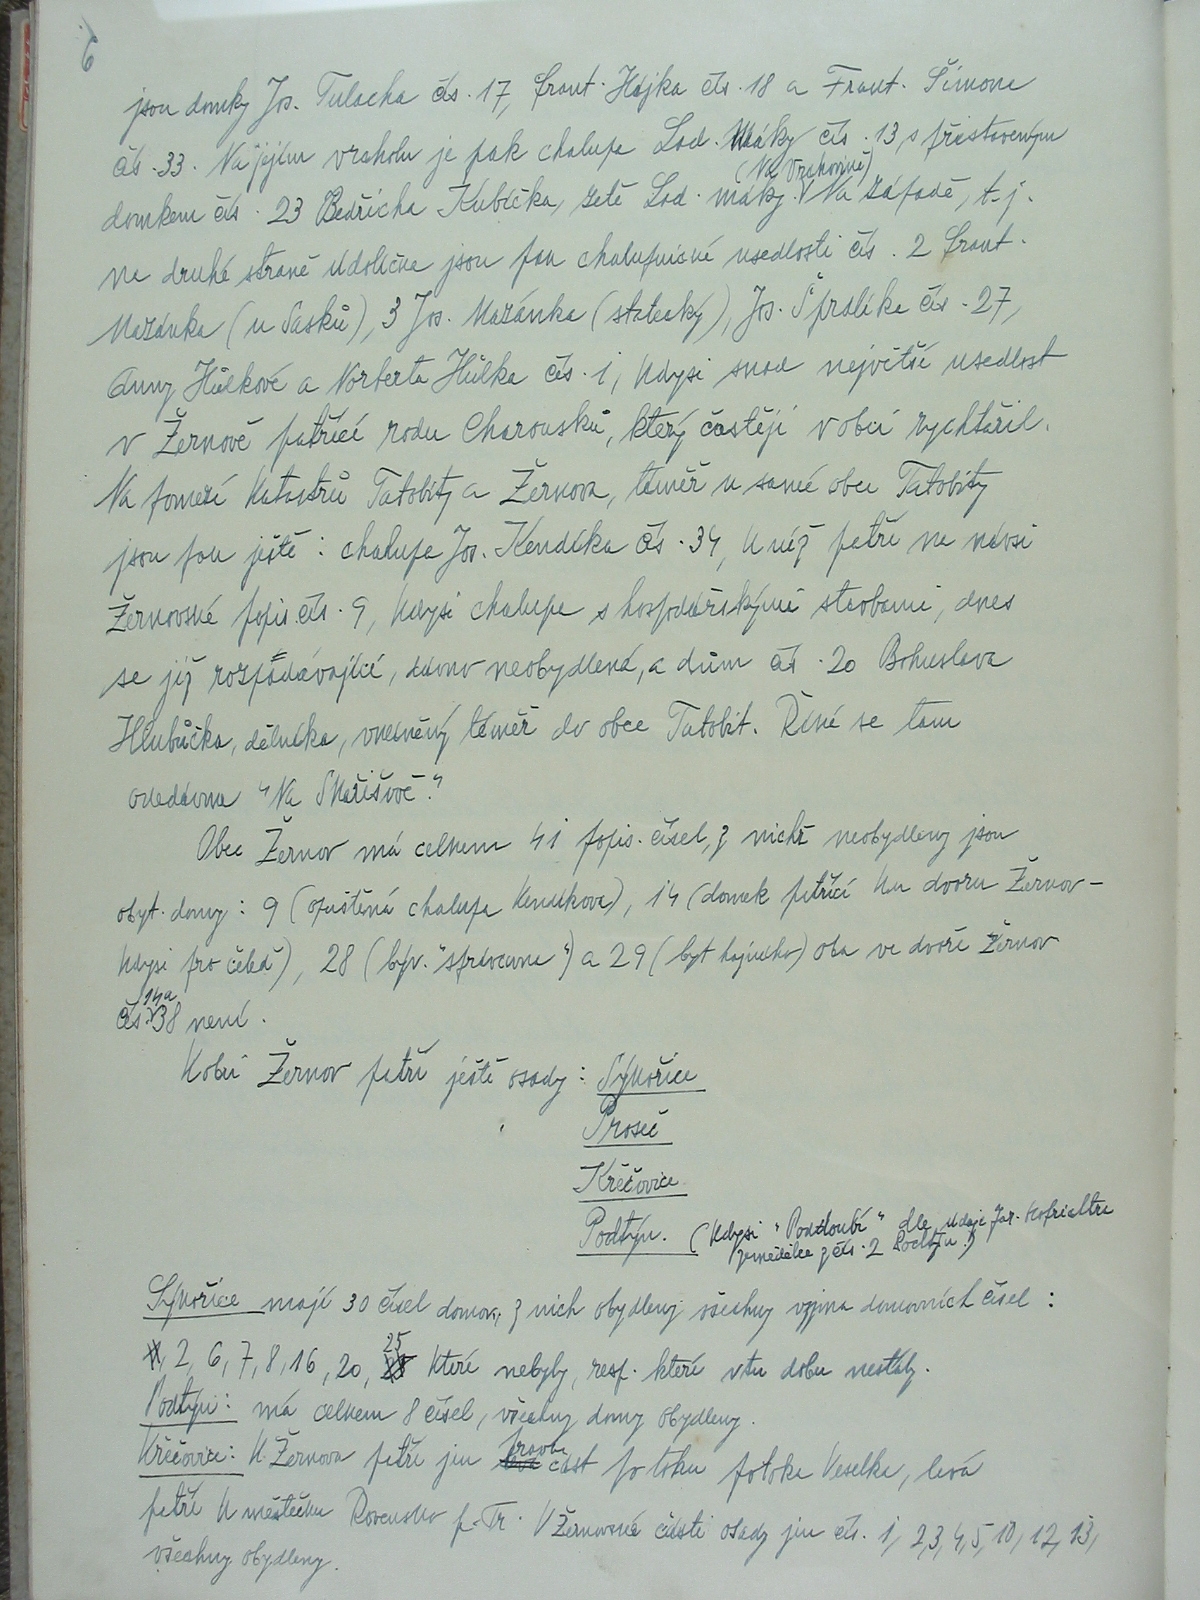 6
jsou domky Jos. Tulacha čís. 17, Frant. Hájka čís. 18 a Frant. Šimona
čís. 33. Na jejím vrcholu je pak chalupa Lad. Máky čís. 13 s přistaveným
(Na Vrchovině)
domkem čís. 23 Bedřicha Kubíčka, zetě Lad. Máky. V Na západě, t. j.
na druhé straně údolíčka jsou pak chalupnické usedlosti čís. 2 Frant.
Mazánka (u Sasků), 3 Jos. Mazánka (statecký), Jos. Špralíka čís. 27,
Anny Hůlkové a Norberta Hůlka čís. 1, kdysi snad největší usedlost
v Žernově patřící rodu Charousků, který častěji v obci rychtářil.
Na pomezí katastrů Tatobity a Žernova, téměř u samé obce Tatobity
jsou pak ještě: chalupa Jos. Kendíka čís. 34, k níž patří na návsi
Žernovské popis. čís. 9, kdysi chalupa s hospodářskými stavbami, dnes
se již rozpadávající, dávno neobydlená, a dům čís. 20 Bohuslava
Hlubůčka, dělníka, vklíněný téměř do obce Tatobit. Říká se tam
odedávna "Na Skařišově."
Obec Žernov má celkem 41 popis. čísel, z nichž neobydleny jsou
obyt. domy: 9 (opuštěná chalupa Kendíkova), 14 (domek patřící ku dvoru Žernov –
kdysi pro čeleď), 28 (býv. "správcovna") a 29 (byt hajného) oba ve dvoře Žernov
14a
čís. V 38 není.
K obci Žernov patří ještě osady: Sýkořice
Proseč
Křečovice
Podtýn. (kdysi "Podzloubí" dle údaje Jar. Kofrialtra
zemědělce z čís. 2 Podtýn.)
Sýkořice mají 30 čísel domov. z nich obydleny všechny vyjma domovních čísel:
25
2, 6, 7, 8, 16, 20, které nebyly, resp. které v tu dobu nestály.
Podtýn: má celkem 8 čísel, všechny domy obydleny.
pravá
Křečovice: K Žernovu patří jen část po toku potoka Veselka, levá
patří k městečku Rovensko p. Tr. V Žernovské části osady jen čís. 1, 2, 3, 4, 5, 10, 12, 13,
všechny obydleny.